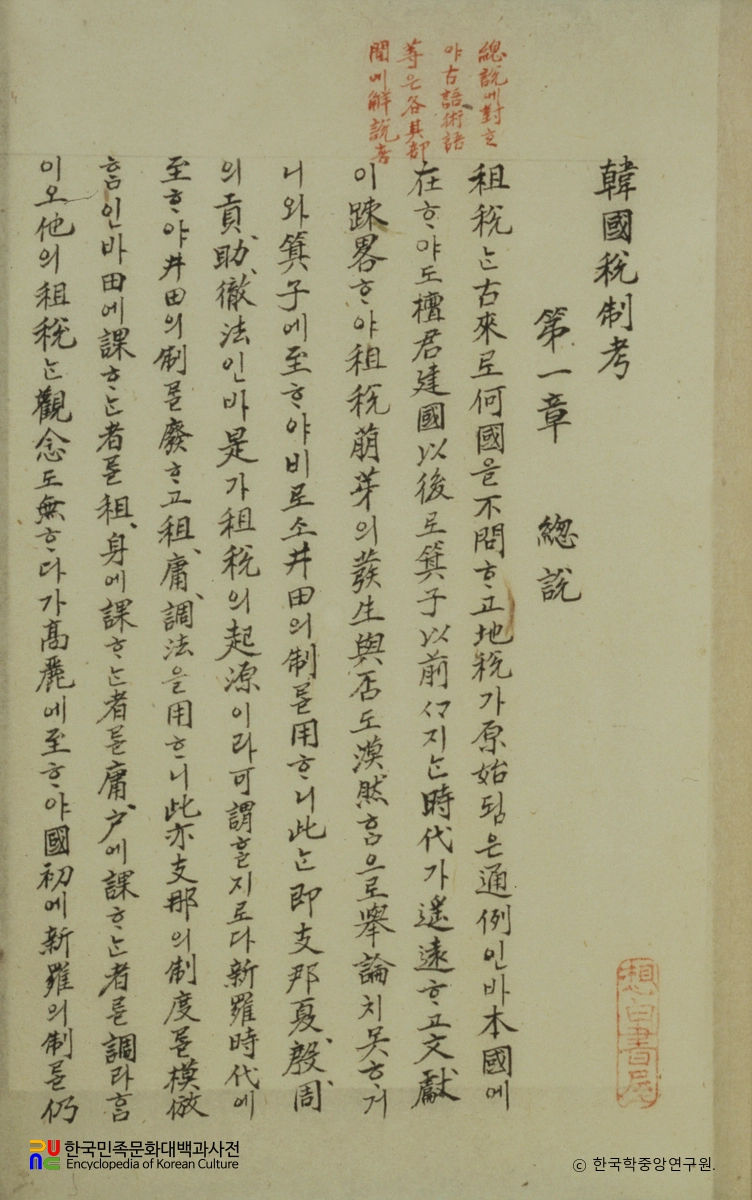 韓國稅制考
第一章 總說
租稅ᄂᆞᆫ古來로何國을不問ᄒᆞ고地稅가原始됨은通例인바本國에
在ᄒᆞ야도檀君建國以後로箕子以前ᄭᆞ지ᄂᆞᆫ時代가遙遠ᄒᆞ고文獻
이踈畧ᄒᆞ야租稅萠芽의發生與否도漠然ᄒᆞᆷ으로擧論치못ᄒᆞ거
니와箕子에至ᄒᆞ야비로소井田의制ᄅᆞᆯ用ᄒᆞ니此ᄂᆞᆫ即支那夏、殷、周
의貢、助、徹法인바是가租稅의起源이라可謂ᄒᆞᆯ지로다新羅時代에
至ᄒᆞ야井田의制ᄅᆞᆯ廢ᄒᆞ고租、庸、調法을用ᄒᆞ니此亦支那의制度ᄅᆞᆯ模倣
ᄒᆞᆷ인바田에課ᄒᆞᄂᆞᆫ者ᄅᆞᆯ租、身에課ᄒᆞᄂᆞᆫ者ᄅᆞᆯ庸、戶에課ᄒᆞᄂᆞᆫ者ᄅᆞᆯ調라ᄒᆞᆷ
이오他의租稅ᄂᆞᆫ觀念도無ᄒᆞ다가高麗에至ᄒᆞ야國初에新羅의制ᄅᆞᆯ仍
總說에對ᄒᆞ
야古語、術語
等은各其部
門에解說홈
想白書屋
한국민족문화대백과사전
Encyclopedia of Korean Culture
ⓒ 한국학중앙연구원.